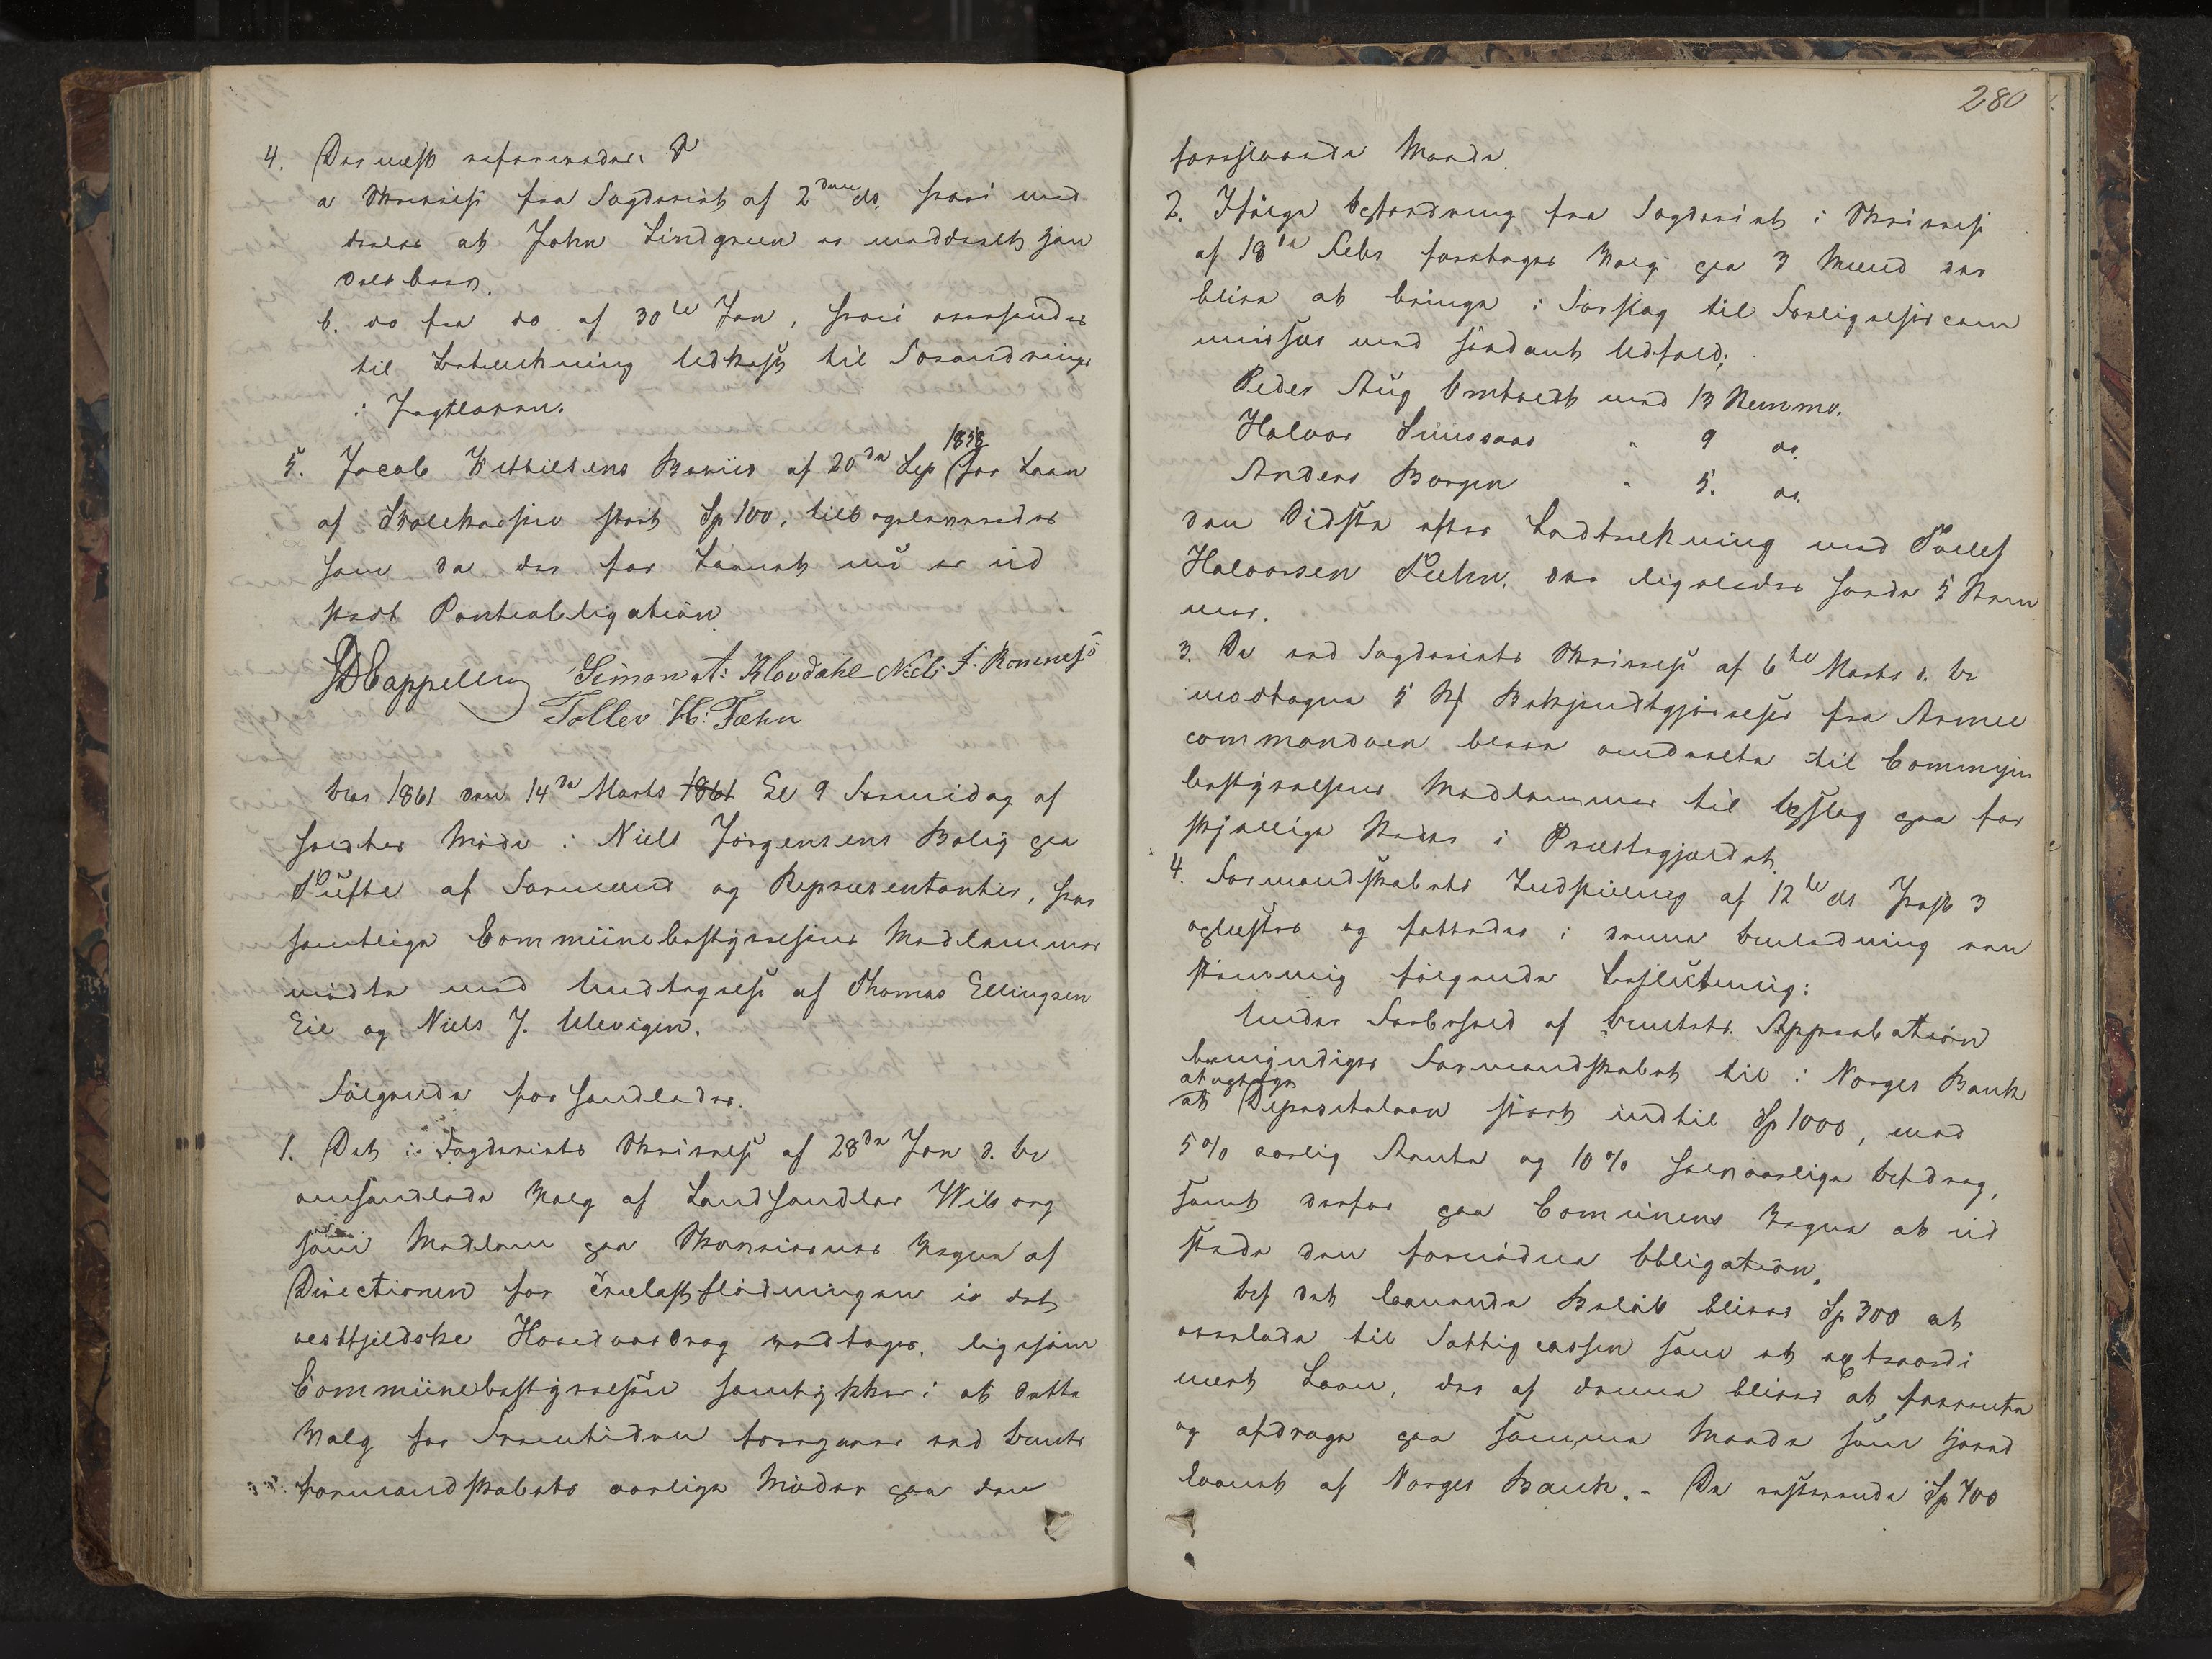 4. Dernæst refereredes:
a Skrivelse fra Fogderiet af 2den ds. hvori med
deeles at John Lindgreen er meddeelt Han
delsbrev.
b. do fra do af 30te Jan, hvori oversendes
til Betænkning Udkast til Forandringer
i Jagtloven.
5. Jacob Kittilsens Beviis af 20de Sep 1858 for Laan
af Skolekassen stort Sp 100, tilbageleveredes
ham da der for Laanet nu er ud
stedt Panteobligation
DCappelen Simon A: Klovdahl Niels J. Romnes
Tollev H: Fæhn
Aar 1861 den 14de Marts 1861 Kl 9 Formidag af
holdtes Møde i Niels Jørgensens Bolig paa
Tufte af Formænd og Repræsentanter, hvor
samtlige Communebestyrelsens Medlemmer
mødte med Undtagelse af Thomas Ellingsen
Eie og Niels J. Ulevigen.
Følgende forhandledes.
1. Det i Fogderiets Skrivelse af 28de Jan d. Ar
omhandlede Valg af Landhandler Wiborg
som Medlem paa Skoveiernes Vegne af
Directionen for Trælastflødningen i det
vestfjeldske Hovedvasdrag vedtages, ligesom
Communebestyrelsen samtykker i at dette
Valg for Fremtiden foregaaer ved Amts
formandskabets aarlige Møder paa den
280
foreslaaede Maade.
2. Ifølge Anordning fra Fogderiet i Skrivelse
af 18de Febr foretoges Valg paa 3 Mænd der
blive at bringe i Forslag til Forligelsescom
missær med saadant Udfald;
Peder Aug Omtvedt med 13 Stemmer.
Halvor Sunsaas " 9 do.
Anders Borgen " 5. do.
den Sidste efter Lodtrækning med Tollef
Halvorsen Fæhn, der ligeledes havde 5 Stem
mer.
3. De ved Fogderiets Skrivelse af 6te Marts d. Ar
modtagne 5 St Bekjendtgjørelser fra Armee
commandoen bleve omdeelte til Commune
bestyrelsens Medlemmer til Opslag paa for
skjellige Steder i Præstegjeldet.
4. Formandskabets Indstilling af 12te ds Post 3
oplæstes og fattedes i denne Anledning een
stemmig følgende Beslutning:
Under Forbehold af Amtets Approbation
bemyndiges Formandskabet til i Norges Bank
at optage
et Depositolaan stort indtil Sp 1000, med
5 % aarlig Rente og 10 % halvaarlige Afdrag,
samt derfor paa Comunens Vegne at ud
stede den fornødne Obligation.
Af det laanende Beløb bliver Sp 300 at
overlade til Fattigcassen som et extraordi
nært Laan, der af denne bliver at forrente
og afdrage paa samme Maade som Hoved
laanet af Norges Bank. - De resterende Sp 700